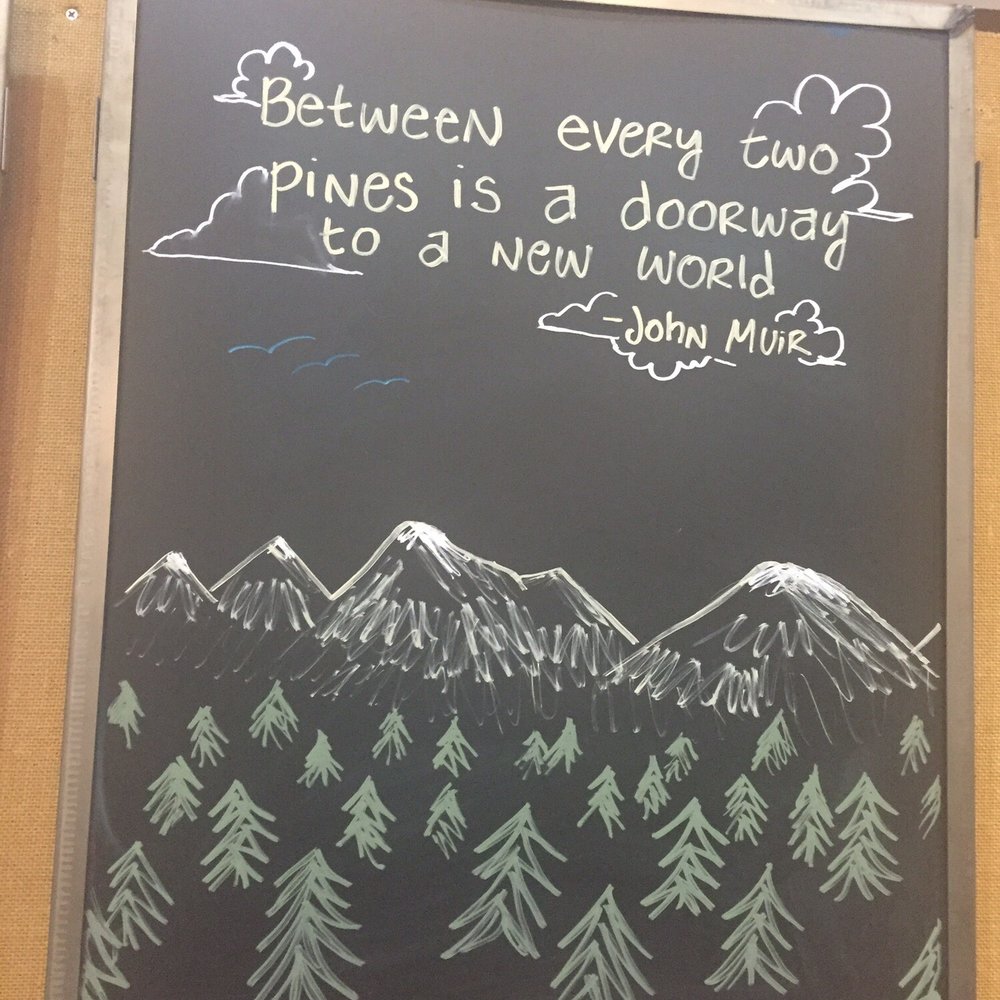 Between every two
pines is a doorway
to a new world
-John Muir